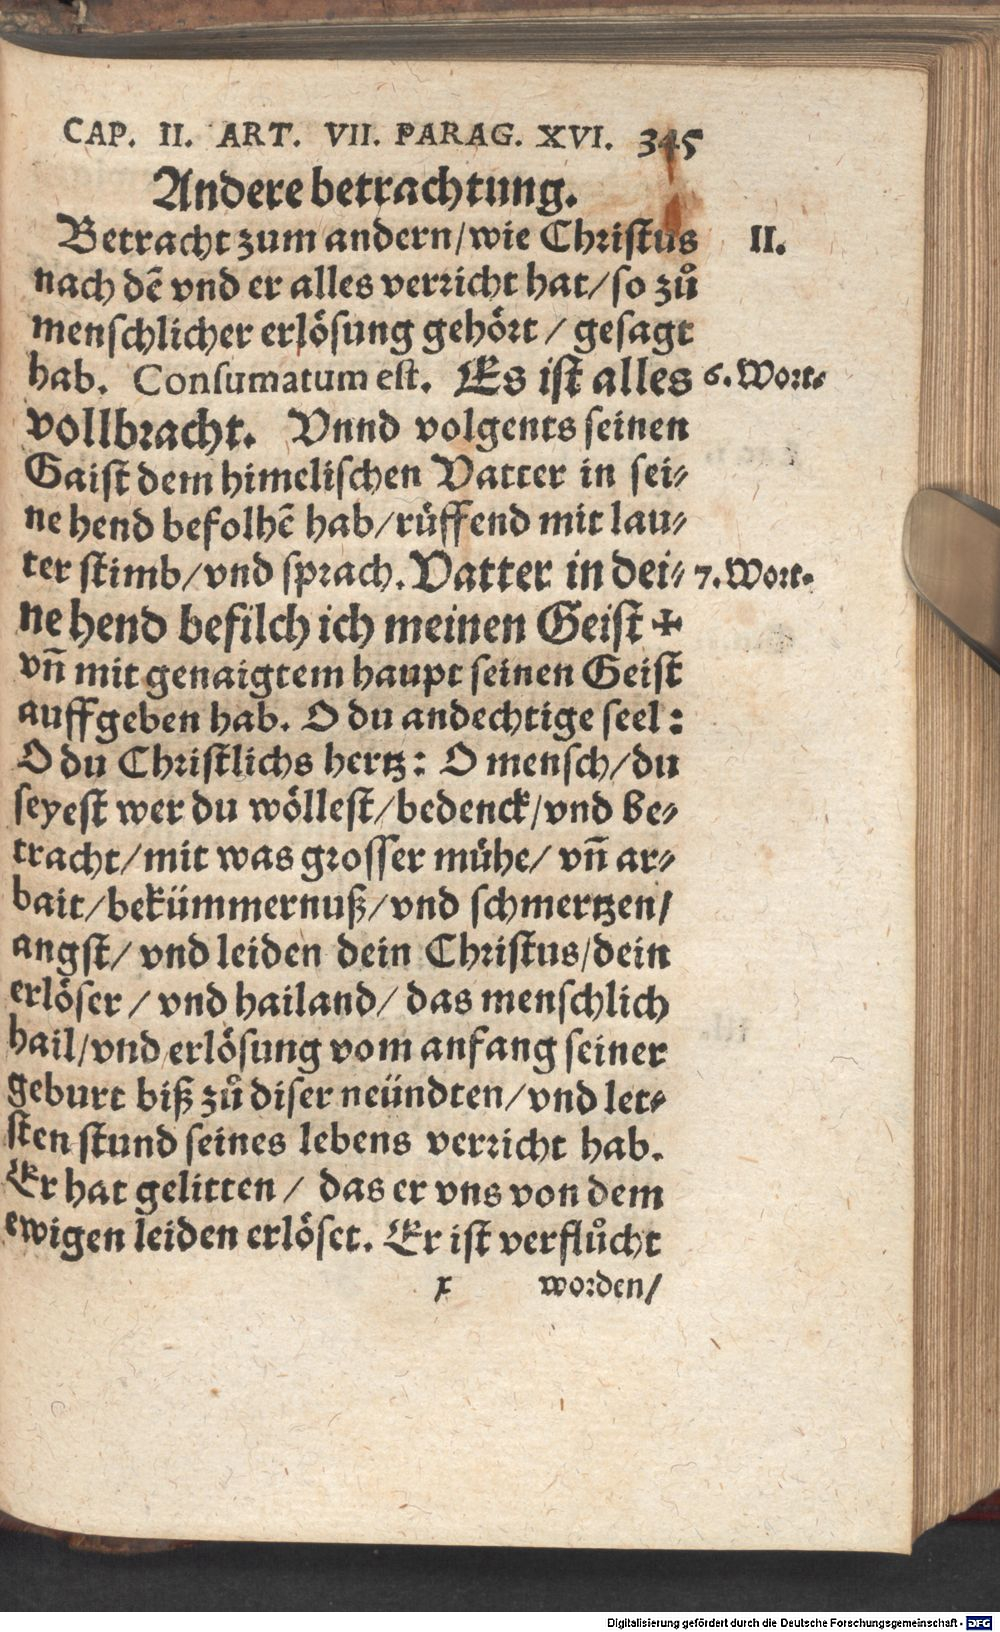 CAP. II. ART. VII. PARAG. XVI. 345
Andere betrachtung.
Betracht zum andern/wie Christus
II.
nach dẽ vnd er alles verricht hat/so zů
menschlicher erlösung gehört / gesagt
hab. Consumatum est. Es ist alles
6. Wort.
vollbracht. Vnnd volgents seinen
Gaist dem himelischen Vatter in sei-
ne hend befolhẽ hab/rüffend mit lau-
ter stimb/vnd sprach. Vatter in dei-
7. Wort.
ne hend befilch ich meinen Geist ✠
vñ mit genaigtem haupt seinen Geist
auffgeben hab. O du andechtige seel:
O du Christlichs hertz: O mensch/du
seyest wer du wöllest/bedenck/vnd be-
tracht/mit was grosser mühe/ vñ ar-
bait/bekümmernuß/vnd schmertzen/
angst/ vnd leiden dein Christus/dein
erlöser / vnd hailand/ das menschlich
hail/vnd erlösung vom anfang seiner
geburt biß zů diser neündten/vnd let-
sten stund seines lebens verricht hab.
Er hat gelitten / das er vns von dem
ewigen leiden erlöset. Er ist verflůcht
x worden/
Digitalisierung gefördert durch die Deutsche Forschungsgemeinschaft - DFG